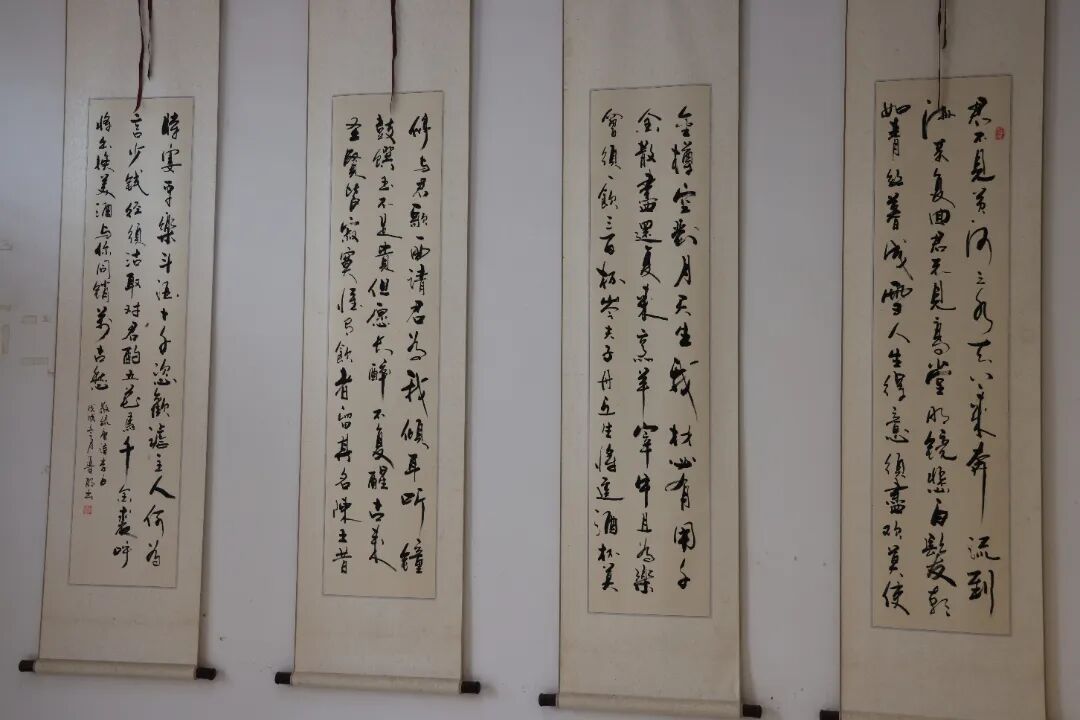 君不見黄河之水天上来奔流到
海不复回君不見高堂明镜悲白髮朝
如青丝暮成雪人生得意須盡欢莫使
金樽空對月天生我材必有用千
金散盡還复来烹羊宰牛且為樂
會須一飲三百杯岑夫子丹丘生將進酒杯莫
停与君歌一曲請君為我傾耳听鐘
鼓饌玉不足貴但愿长醉不复醒古来
圣賢皆寂寞惟有飲者留其名陳王昔
時宴平樂斗酒十千恣歡謔主人何為
言少钱径須沽取对君酌五花馬千金裘呼
将出换美酒与尔同銷萬古愁
敬錄唐诗李白
戊戌